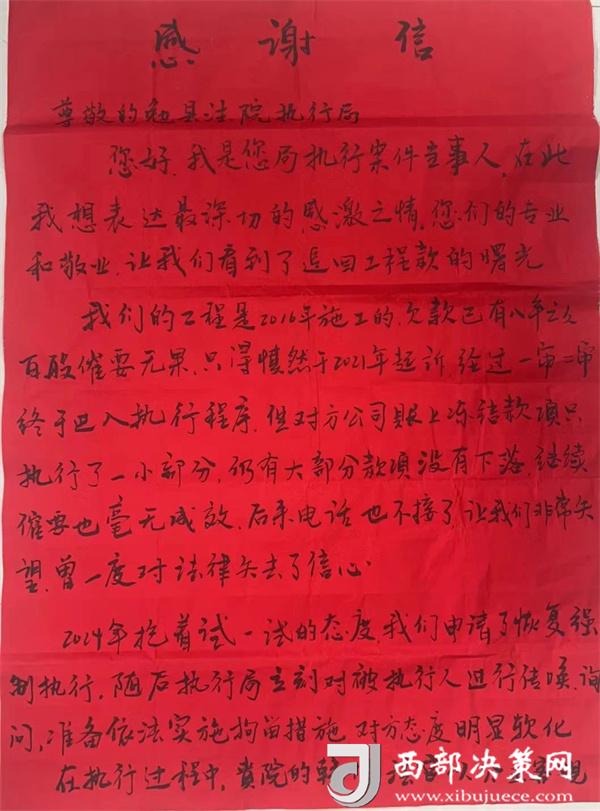 感谢信
尊敬的勉县法院执行局
您好,我是您局执行案件当事人,在此
我想表达最深切的感激之情,您们的专业
和敬业,让我们看到了追回工程款的曙光
我们的工程是2016年施工的,欠款已有八年之久
百般催要无果,只得慎然于2021年起诉,经过一审二审
终于进入执行程序,但对方公司账上冻结款项只
执行了一小部分,仍有大部分款项没有下落,继续
催要也毫无成效,后来电话也不接了,让我们非常失
望,曾一度对法律失去了信心.
2024年抱着试一试的态度,我们申请了恢复强
制执行,随后执行局立刻对被执行人进行传唤,询
问,准备依法实施拘留措施,对方态度明显软化
在执行过程中,贵院的
西部决策网
www.xibujuece.com